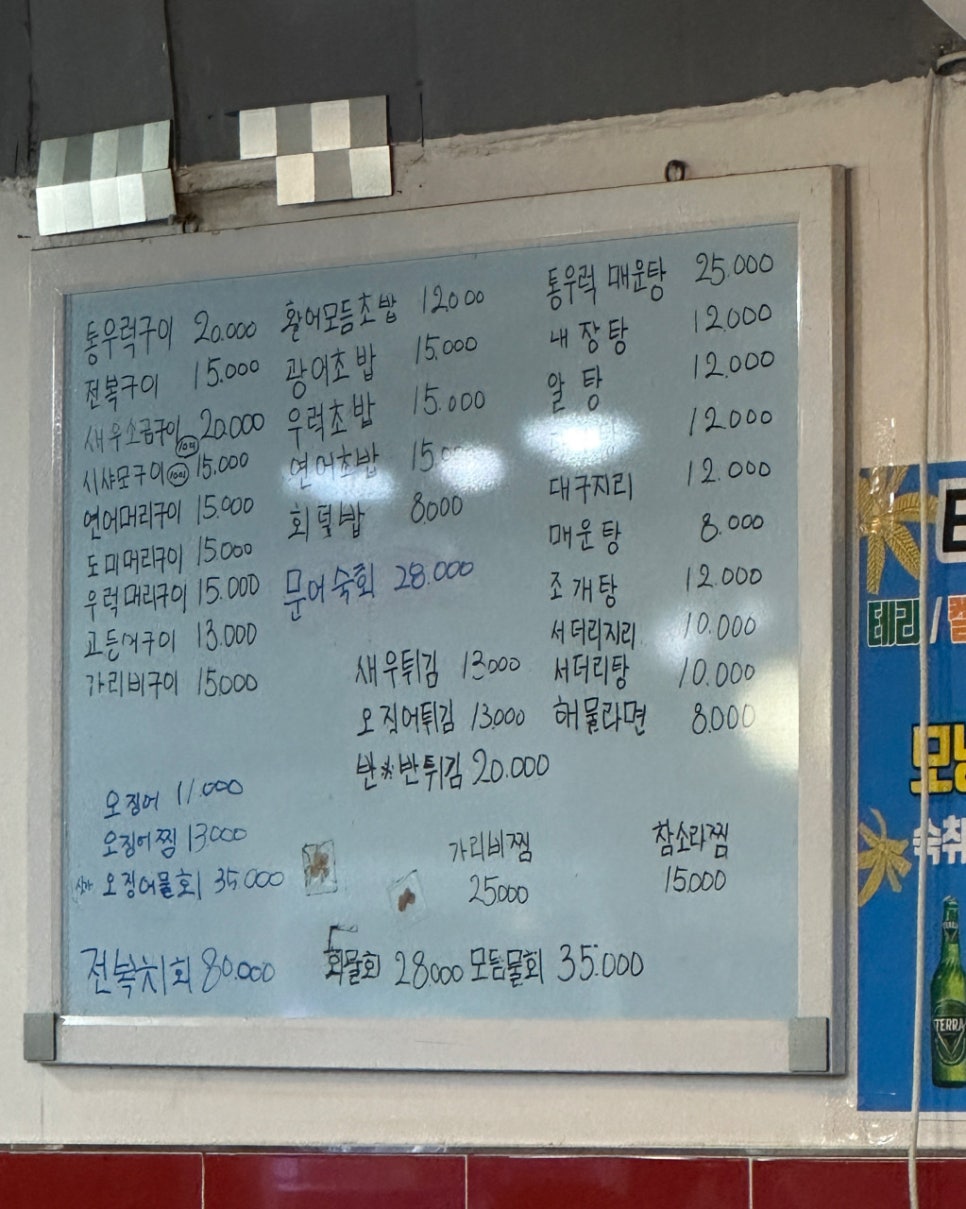 통우럭구이 20.000
전복구이 15.000
새우소금구이 20.000
시샤모구이 15.000
연어머리구이 15.000
도미머리구이 15.000
우럭머리구이 15.000
고등어구이 13.000
가리비구이 15000
활어모듬초밥 12000
광어초밥 15.000
우럭초밥 15.000
연어초밥 15.000
회덮밥 8.000
문어숙회 28.000
새우튀김 13000
오징어튀김 13.000
반*반튀김 20.000
통우럭 매운탕 25.000
내장탕 12.000
알탕 12.000
12.000
대구지리 12.000
매운탕 8.000
조개탕 12.000
서더리지리 10.000
서더리탕 10.000
해물라면 8.000
오징어 11.000
오징어찜 13.000
오징어물회 35.000
가리비찜
25000
참소라찜
15.000
전복치회 80.000
회물회 28000 모듬물회 35.000
테라 /
숙취
TERRA